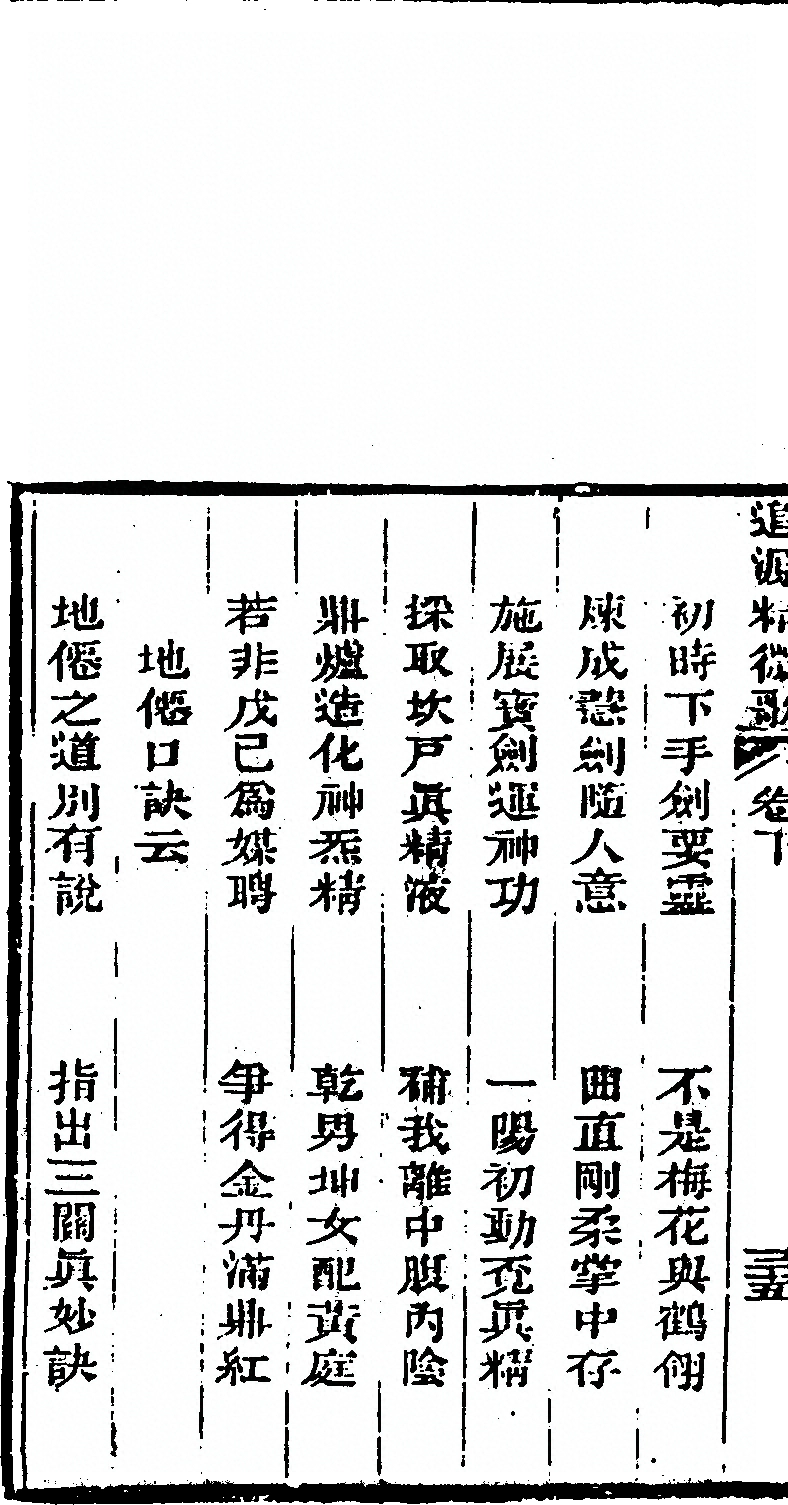 道源精微歌 卷下 三五
初時下手劍要靈 不是梅花與鶴翎
煉成慧劍隨人意 曲直剛柔掌中存
施展寶劍運神功 一陽初動充眞精
採取坎戸眞精液 補我離中腹內陰
鼎爐造化神炁精 乾男坤女配黃庭
若非戊己爲媒聘 爭得金丹滿鼎紅
地僊口訣云
地僊之道別有說 指出三關眞妙訣